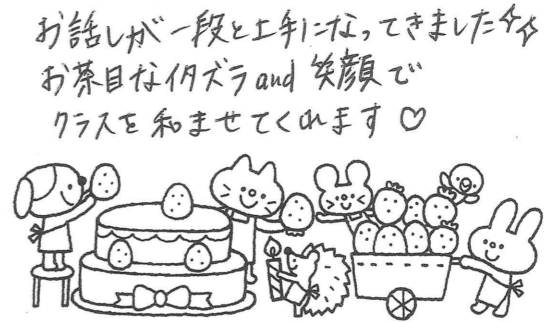 お話しが一段と上手になってきました✧✧
お茶目なイタズラand笑顔で
クラスを和ませてくれます♡